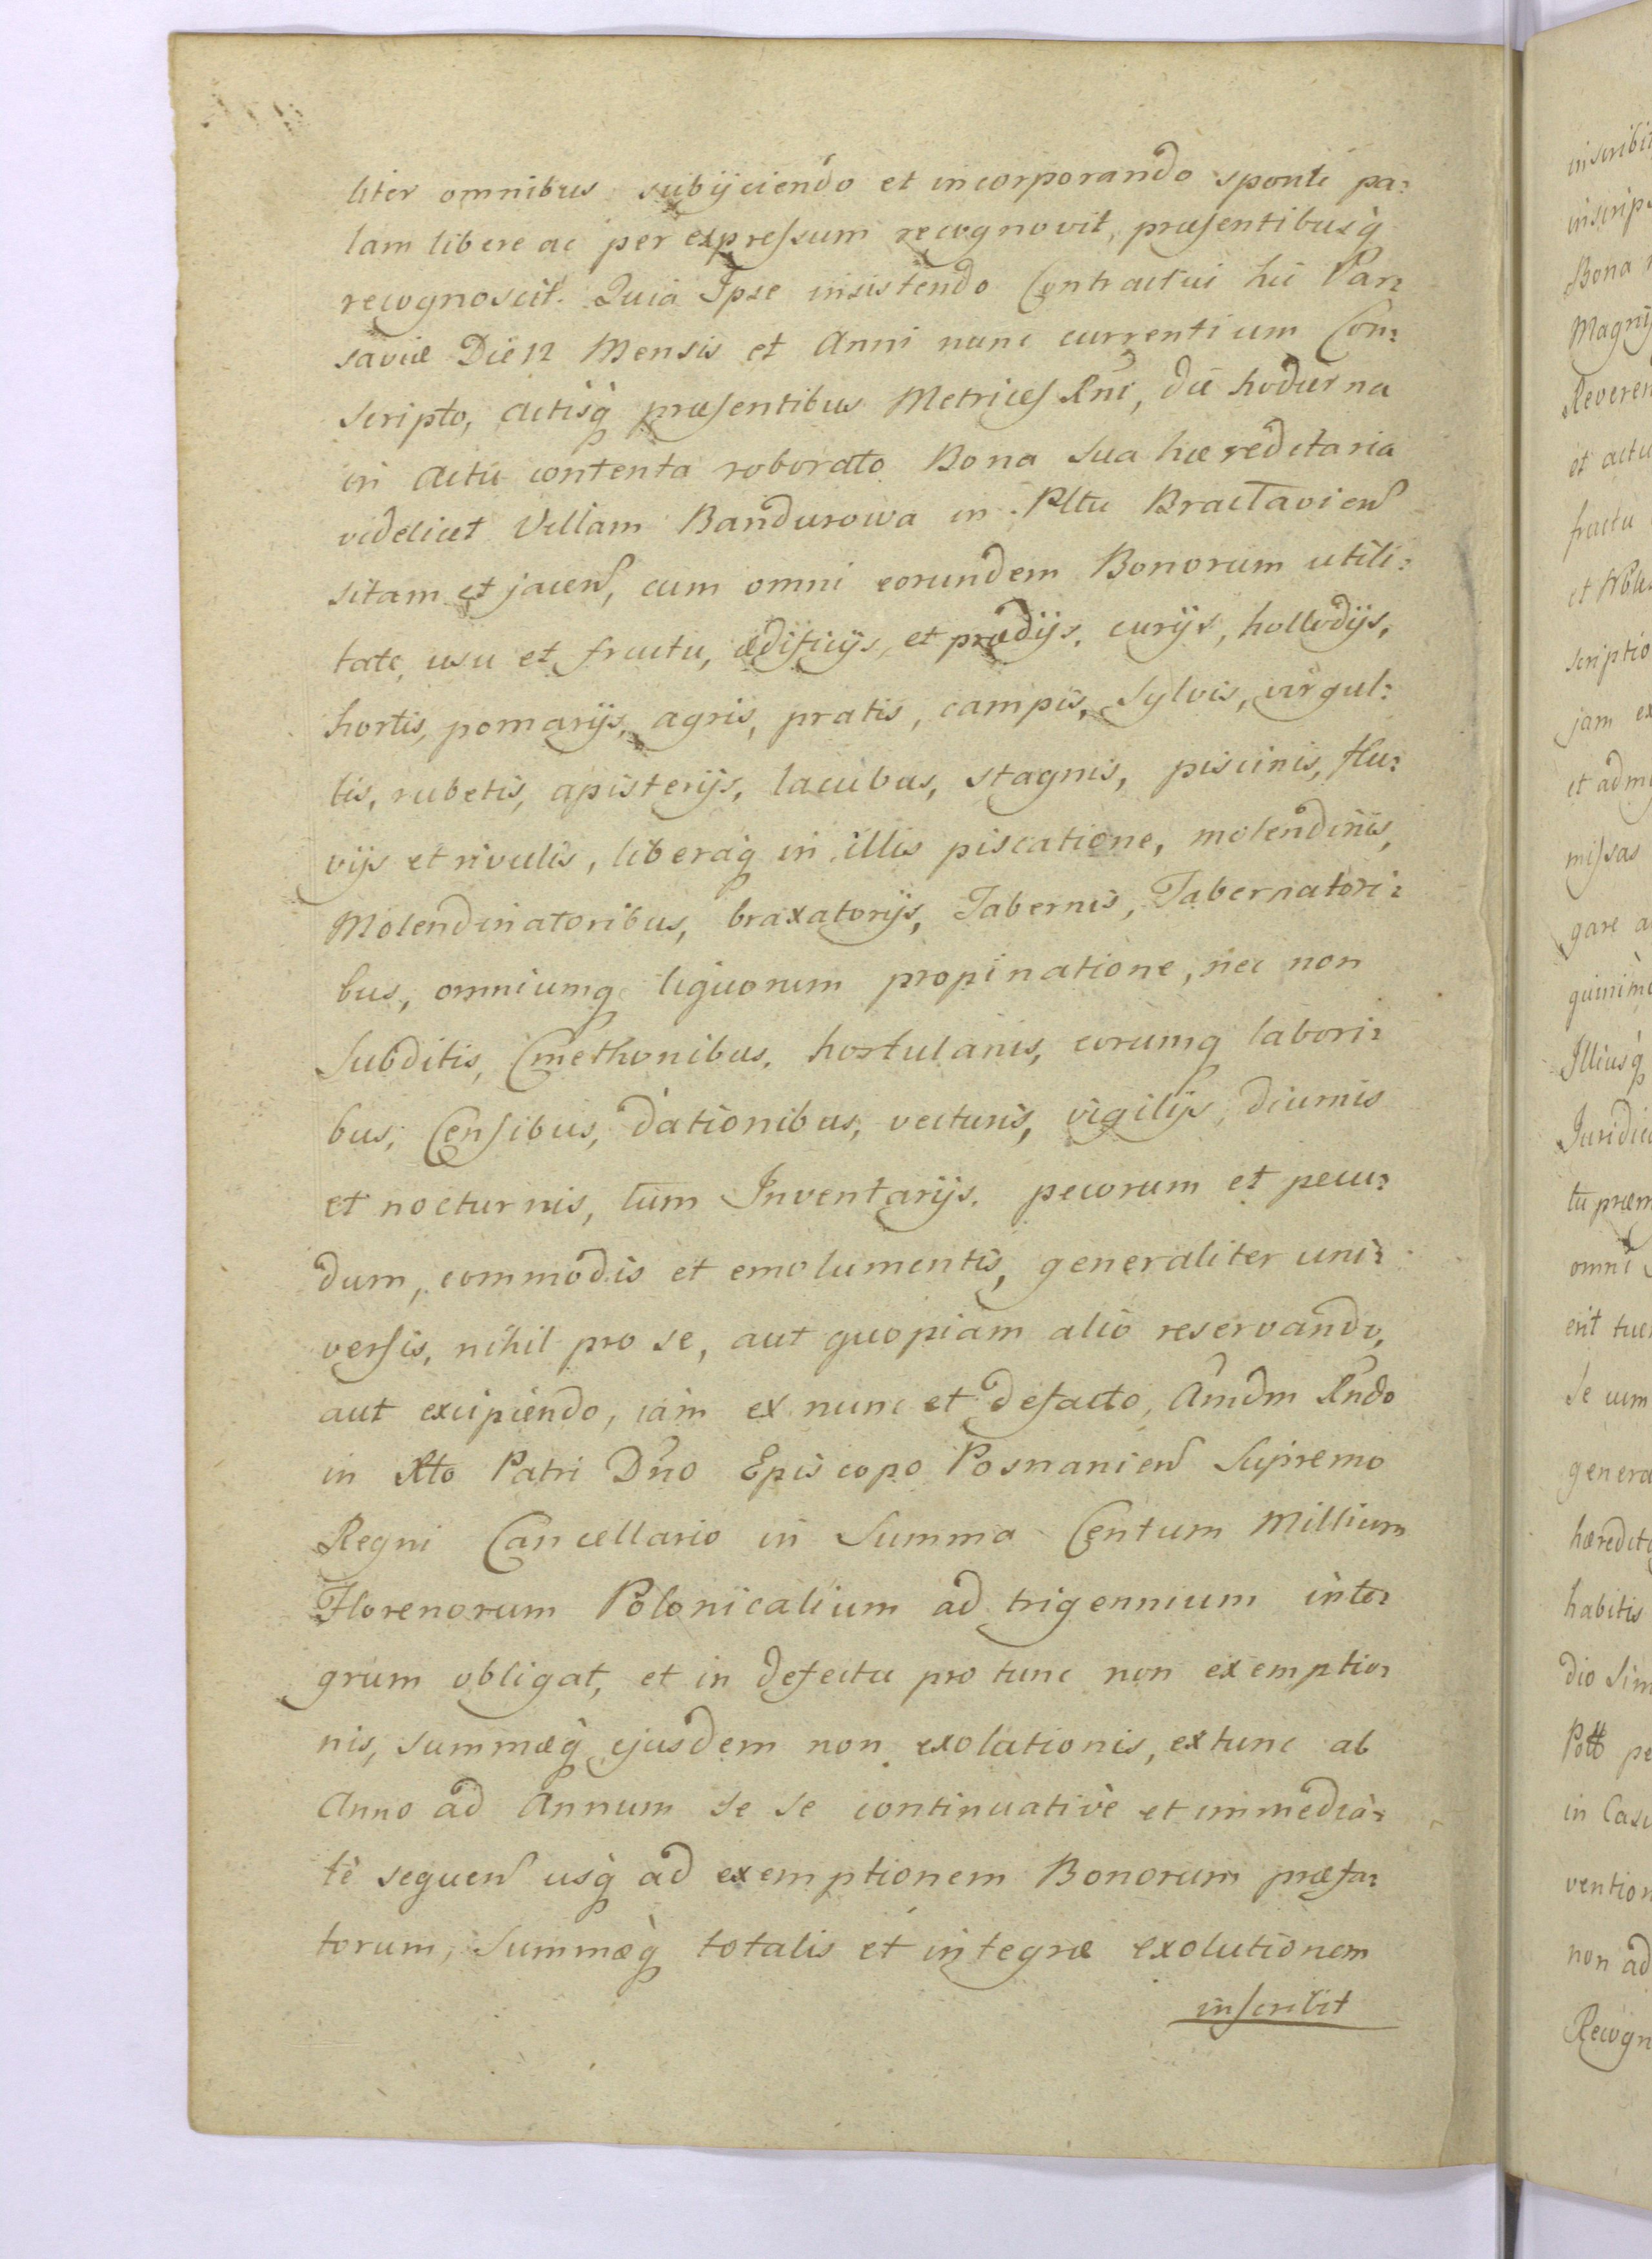 liter omnibus subijciendo et incorporando sponte pa:
lam libere ac per expressum recognovit, præsentibusq̀
recognoscit. Quia Ipse insistendo Contractui hic Var:
saviæ Die 12 Mensis et Anni nunc currentium Con:
scripto, actisq̀ præsentibus Metrices Rni, die hodierna
in actu contenta roborato Bona sua hæreditaria
videlicet Villam Bandurowa in Pltu Bractavien
sitam et jacen, cum omni eorundem Bonorum utili:
tate, usu et fructu, ædificijs, et prædijs, curijs, hollodijs,
hortis, pomarijs, agris, pratis, campis, Sylvis, virgul:
tis, rubetis, apisterijs, lacubus, stagnis, piscinis, flu:
vijs et rivulis, liberaq̀ in illis piscatione, molendinis,
Molendinatoribus, braxatorijs, Tabernis, Tabernatori:
bus, omniumq liquorum propinatione, nec non
Subditis, Cmethonibus, hortulanis, eorumq labori:
bus, Censibus, dationibus, vecturis, vigilijs, diurnis
et nocturnis, tum Inventarijs, pecorum et pecu:
dum, commodis et emolumentis, generaliter uni:
versis, nihil pro se, aut quopiam alio reservando,
aut excipiendo, iam ex nunc et defacto, Amdm Rndo
in Xto Patri Dno Episcopo Posnanien Supremo
Regni Cancellario in Summa Centum Millium
Florenorum Polonicalium ad trigennium inte:
grum obligat, et in defectu pro tunc non exemptio:
nis, summæq̀ ejusdem non exolationis, extunc ab
Anno ad Annum se se continuativè et immedia:
tè sequen usq̀ ad exemptionem Bonorum præfa:
torum, Summæq̀ totalis et integræ exolutionem
inscribit
inscribi
inscrip
Bona
Magni
Reveren
et actu
fructu
scriptio
jam ex
et admi
missas
gare a
quinimo
Illiusq̀
Juridic
tu præm
omni
erit tue
se cum
genera
hæredita
habitis
dio Sim
pe
in Casu
vention
non ad
Recogn